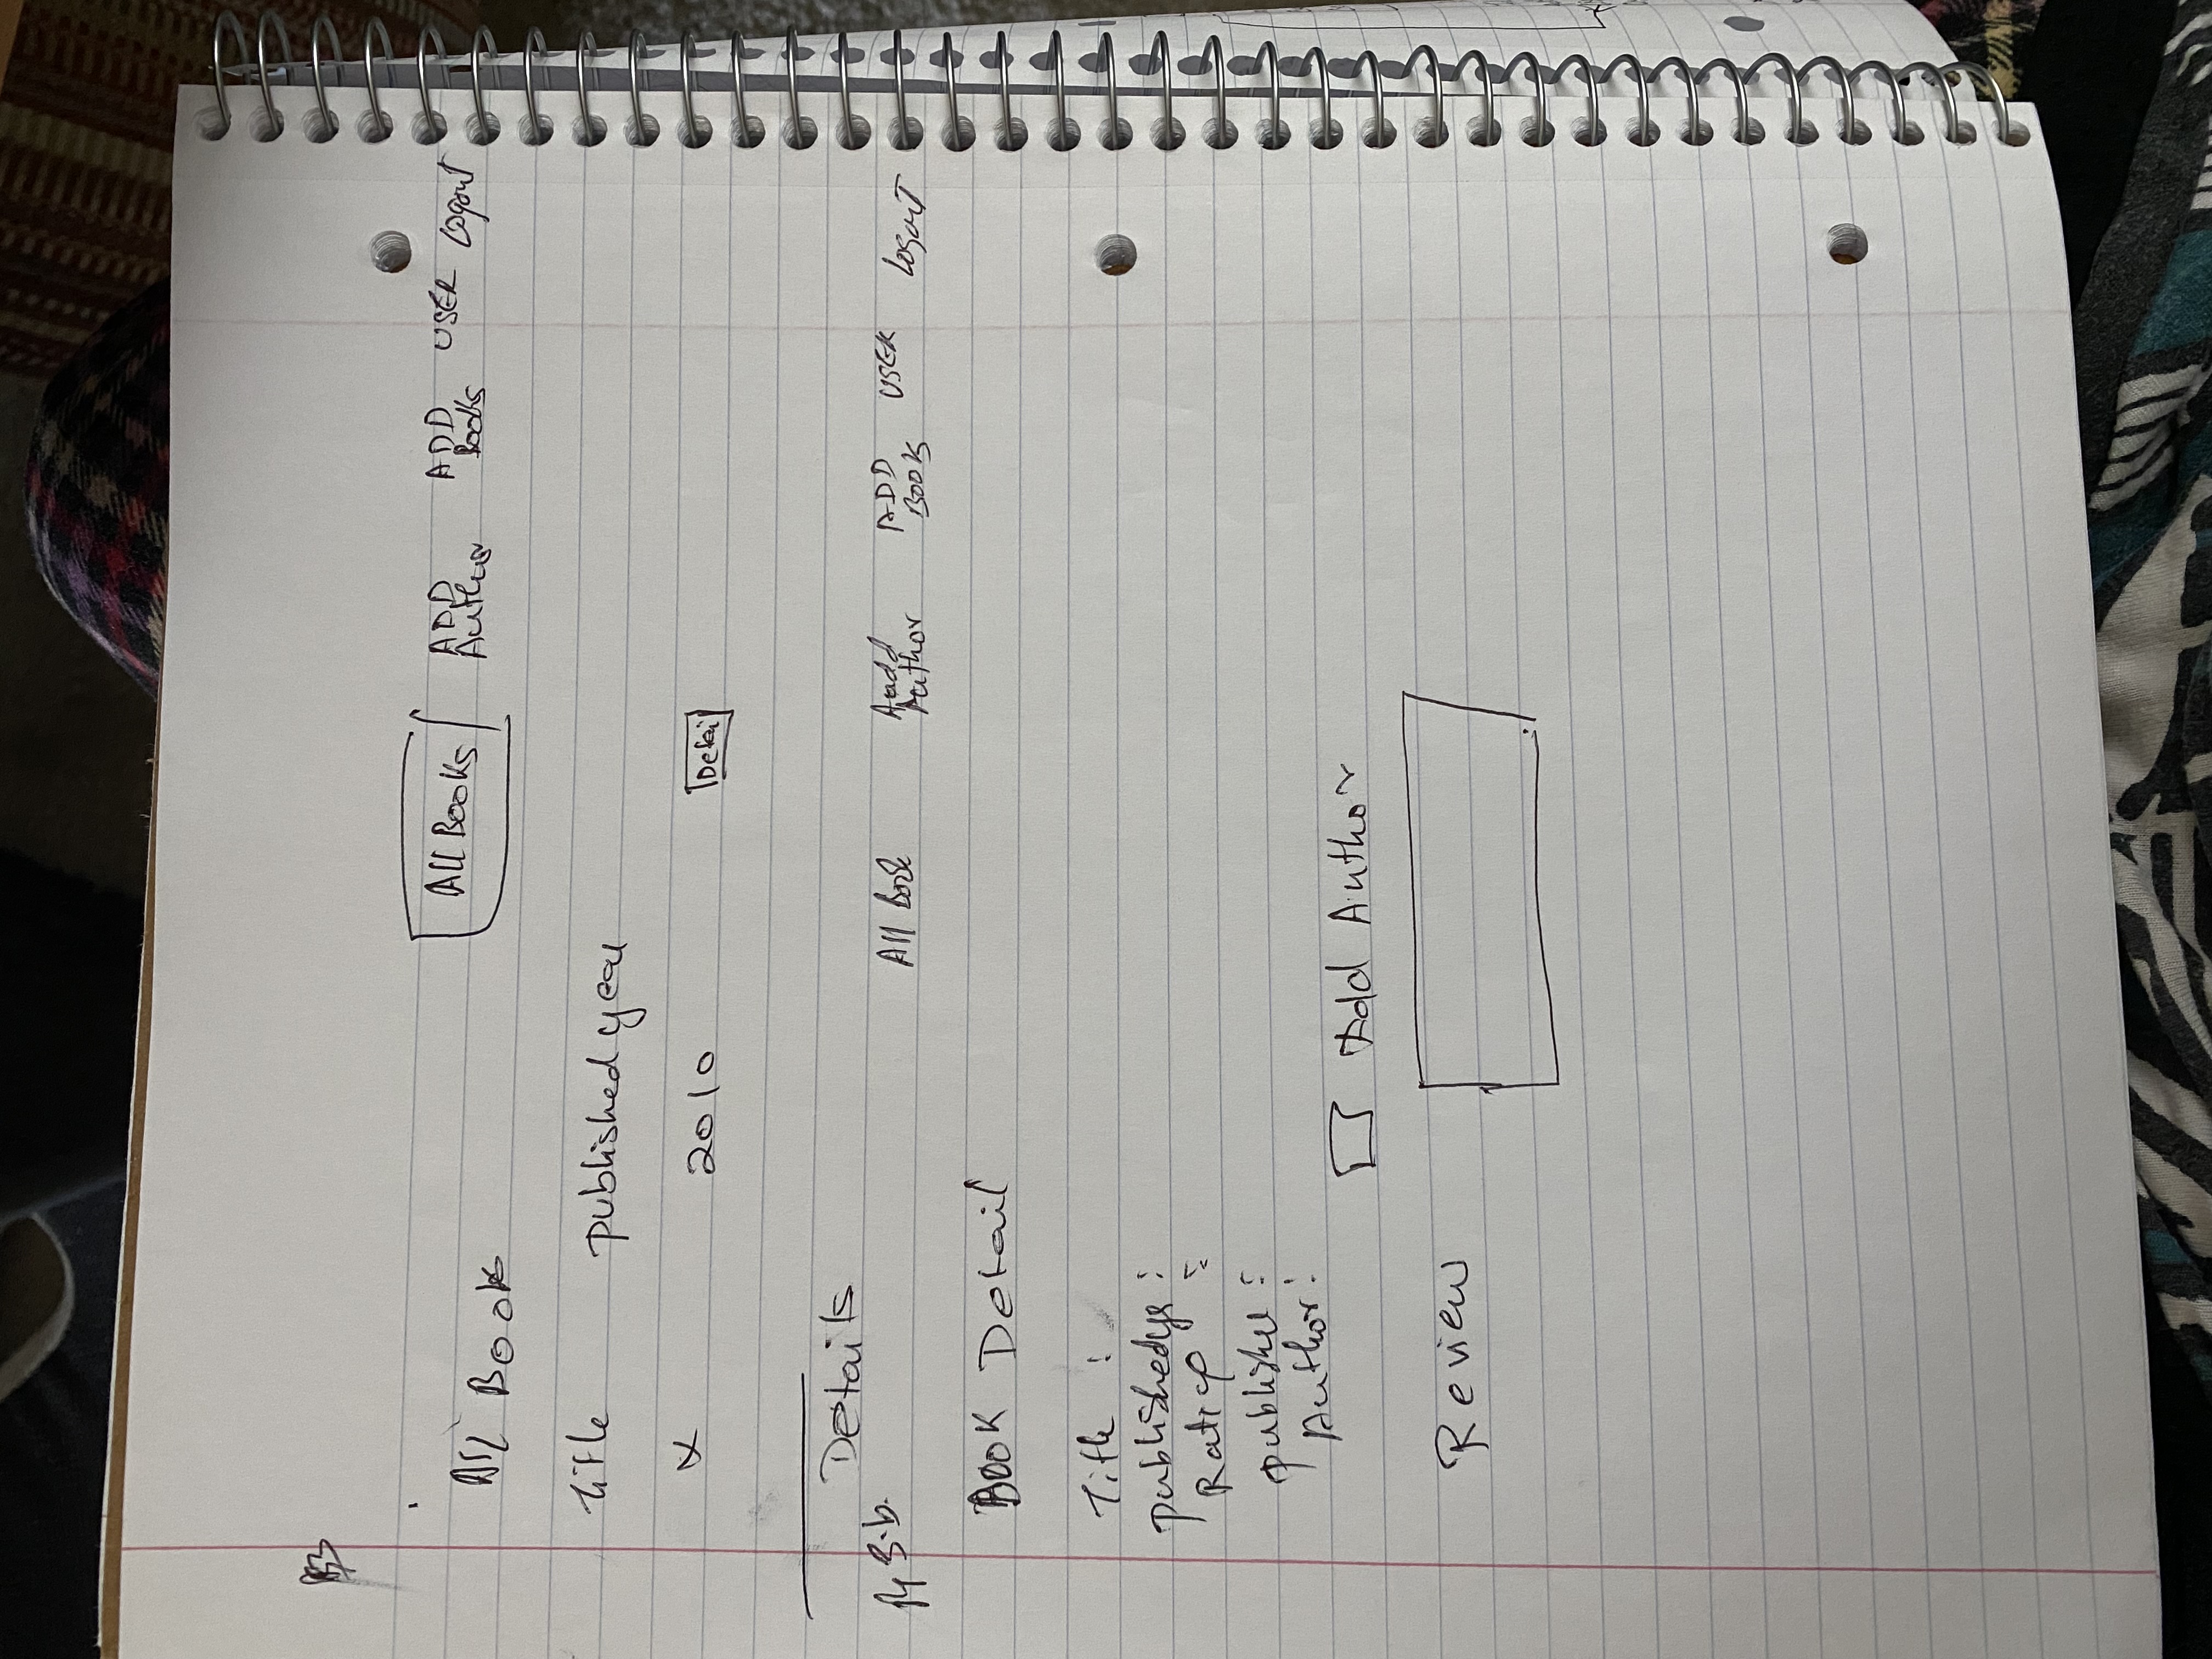 P3
All Books ADD Author ADD Books USER Logout
All Book
Title published year
X 2010 Detail
Details
Pg 3.b.
All Book Aadd Author ADD Books USER Logout
Book Detail
Title :
publishedyr :
Rating :
publisher :
Author :
Add Author
Review